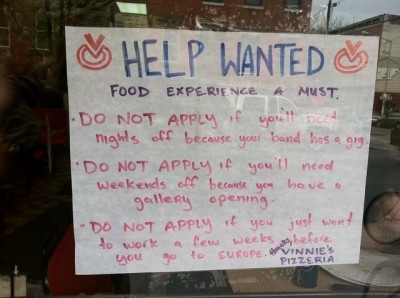 HELP WANTED
FOOD EXPERIENCE A MUST.
• DO NOT APPLY if you'll need
nights off because your band has a gig.
• DO NOT APPLY if you'll need
weekends off because you have a
gallery opening.
• DO NOT APPLY if you just want
to work a few weeks before
you go to EUROPE.
VINNIE'S
PIZZERIA